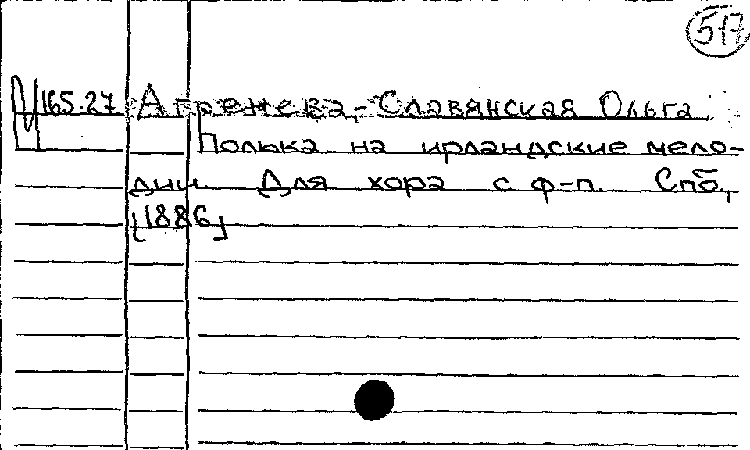 517
165.27 Агренева-Славянская Ольга
Полька на ирландские мело-
дии. Для хора с ф-п. Спб.,
[1886]